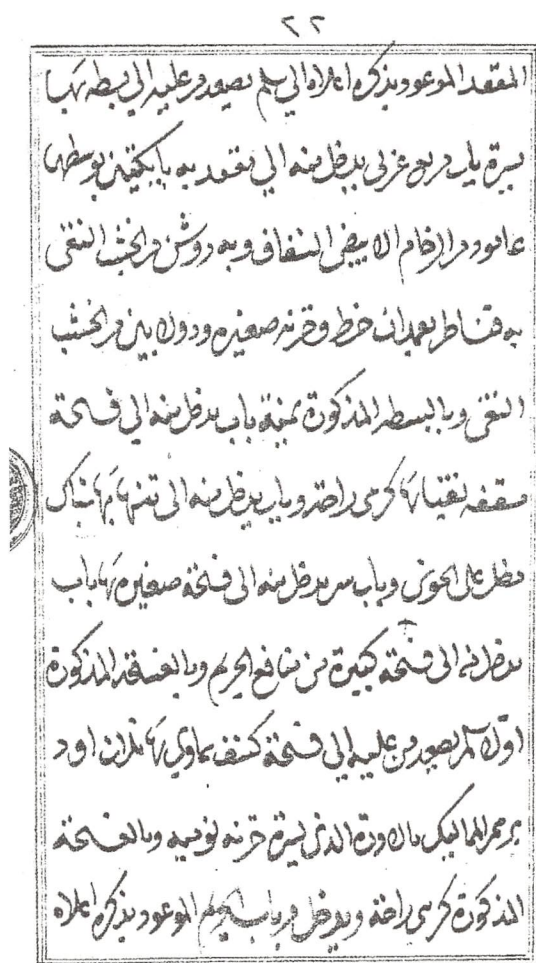 ٢٢
المقعد الموعود بذكره اعلاه الي سلم يصعد من عليه الي بسطه بها
يسرة باب مربع عربي يدخل منه الي مقعد به بايكتين بوسطهما
عامود من الرخام الابيض الشفاف وبه روشن من الخشب النقي
به قناطر بعمدان خرط وخزنه صغيره ودولابين من الخشب
النقي وبالبسطه المذكورة يمنة باب يدخل منه الي فسحة
مسقفه نقيا بها كرسي راحة وباب يدخل منه الى تنهه بها شباك
مطل على الحوش وباب سر يدخل منه الى فسحة صغيره بها باب
يدخل منه الى فسحة كبيرة من منافع الحريم وبالفسقة المذكورة
اولا سلم يصعد من عليه الي فسحة كشف سماوي بها ثلاث اود
برسم المماليك بالاودة الذي يسرة خزنه نوميه وبالفسحة
المذكورة كرسي راحة ويدخل من باب الحريم الموعود بذكره اعلاه